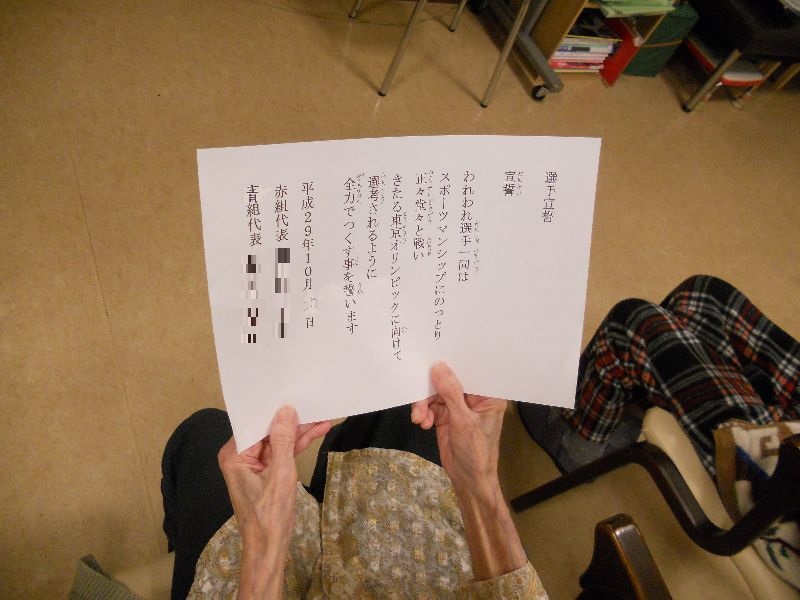 選手宣誓
宣誓
われわれ選手一同は
スポーツマンシップにのっとり
正々堂々と戦い
きたる東京オリンピックに向けて
選考されるように
全力でつくす事を誓います
平成29年10月
日
赤組代表
青組代表